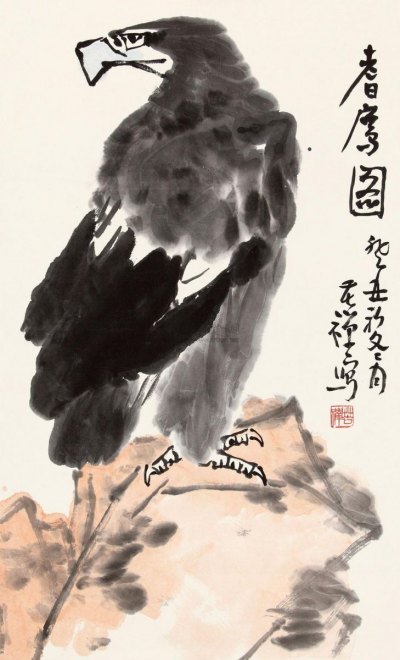 耆鹰图
癸丑初冬月
苦禅写